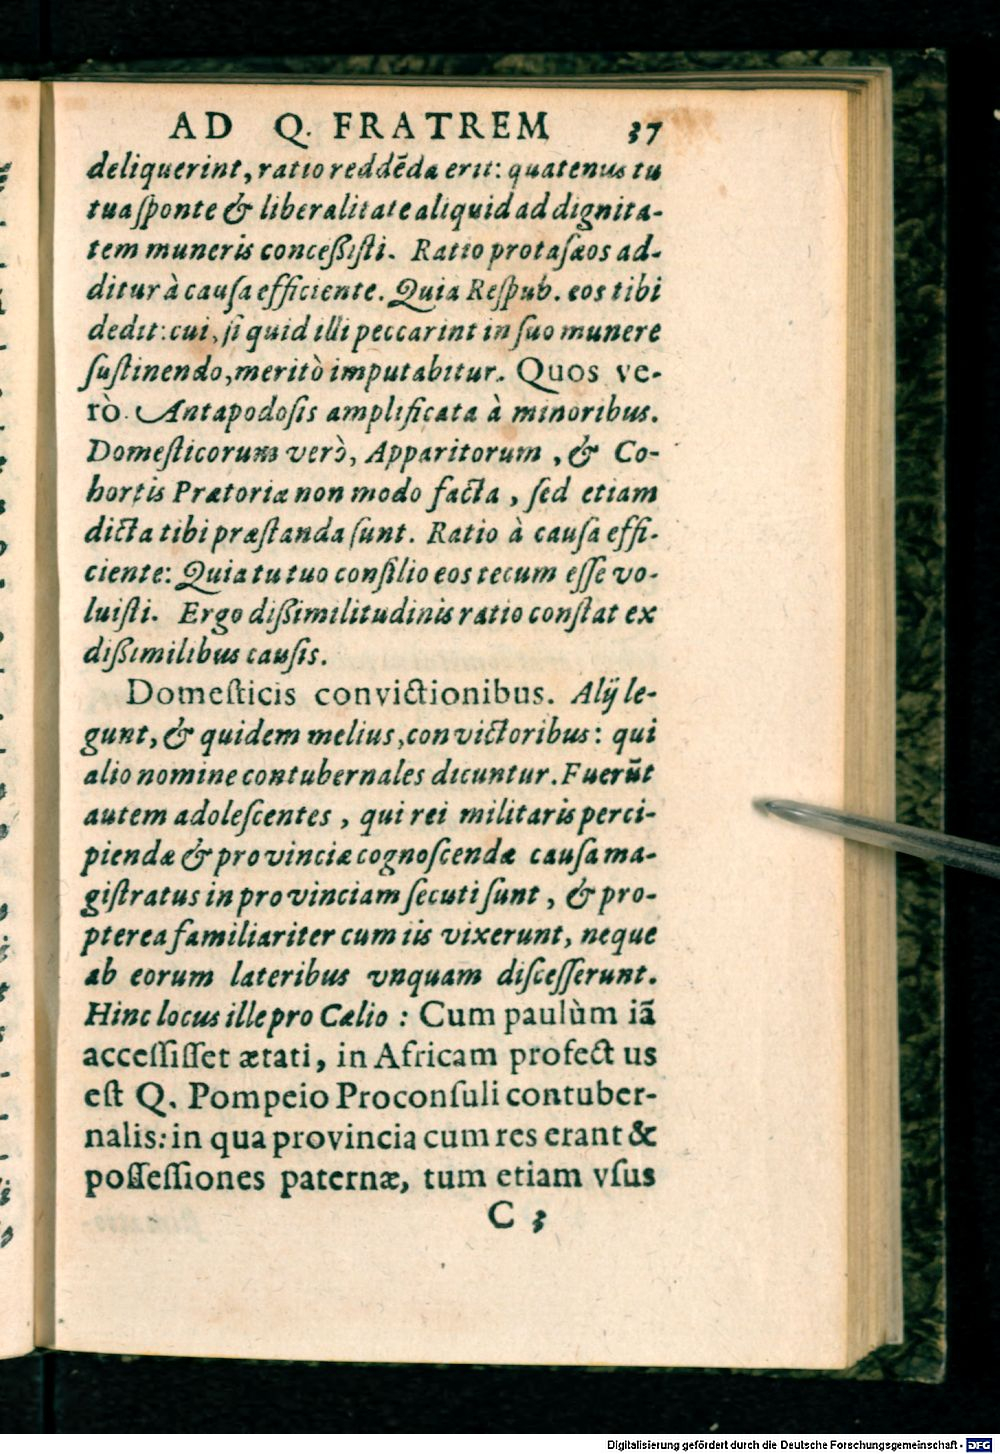 AD Q. FRATREM 37
deliquerint, ratio reddēda erit: quatenus tu
tua ſponte & liberalitate aliquid ad dignita-
tem muneris conceßiſti. Ratio protaſæos ad-
ditur à cauſa efficiente. Quia Reſpub. eos tibi
dedit: cui, ſi quid illi peccarint in ſuo munere
ſuſtinendo, meritò imputabitur. Quos ve-
rò. Antapodoſis amplificata à minoribus.
Domeſticorum verò, Apparitorum, & Co-
hortis Prætoriæ non modo facta, ſed etiam
dicta tibi præſtanda ſunt. Ratio à cauſa effi-
ciente: Quia tu tuo conſilio eos tecum eſſe vo-
luiſti. Ergo dißimilitudinis ratio conſtat ex
dißimilibus cauſis.
Domeſticis convictionibus. Alij le-
gunt, & quidem melius, convictoribus: qui
alio nomine contubernales dicuntur. Fuerūt
autem adoleſcentes, qui rei militaris perci-
piendæ & provinciæ cognoſcendæ cauſa ma-
giſtratus in provinciam ſecuti ſunt, & pro-
pterea familiariter cum iis vixerunt, neque
ab eorum lateribus vnquam diſceſſerunt.
Hinc locus ille pro Cælio: Cum paulùm iā
acceſſiſſet ætati, in Africam profectus
eſt Q. Pompeio Proconſuli contuber-
nalis: in qua provincia cum res erant &
poſſeſſiones paternæ, tum etiam vſus
C 3
Digitalisierung gefördert durch die Deutsche Forschungsgemeinschaft - DFG